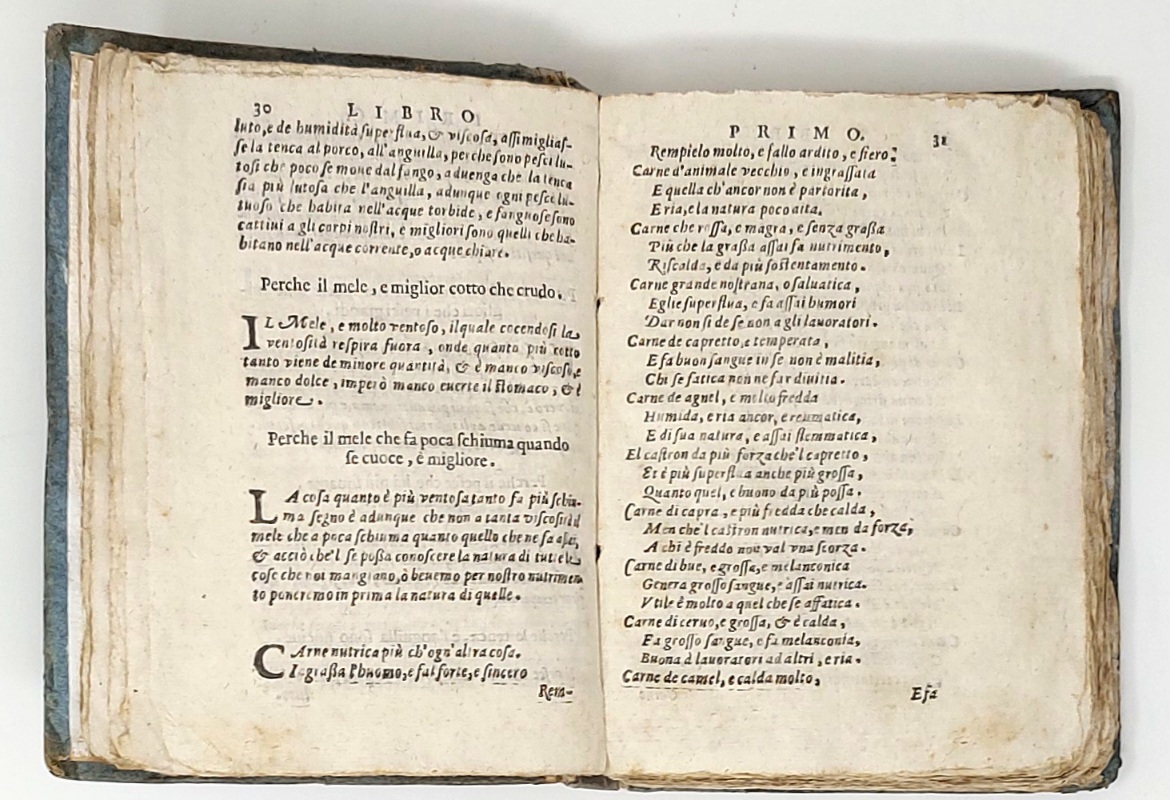 30 LIBRO
luto, e de humidità superflua, & viscosa, assimigliaſ-
ſe la tenca al porco, all'anguilla, perche ſono peſci lu-
toſi che poco ſe moue dal fango, aduenga che la tenca
ſia più lutoſa che l'anguilla, adunque ogni peſce lu-
tuoſo che habita nell'acque torbide, e fanguoſe ſono
cattiui a gli corpi noſtri, e migliori ſono quelli che ha-
bitano nell'acque corrente, o acque chiare.
Perche il mele, e miglior cotto che crudo.
IL Mele, e molto ventoſo, ilquale cocendoſi la
ventoſità reſpira fuora, onde quanto più cotto
tanto viene de minore quantità, & è manco viſcoſo, e
manco dolce, imperò manco euerte il ſtomaco, & è
migliore.
Perche il mele che fa poca ſchiuma quando
ſe cuoce, è migliore.
LA coſa quanto è più ventoſa tanto fa più ſchiu-
ma ſegno è adunque che non a tanta viſcoſità il
mele che a poca ſchiuma quanto quello che ne fa aſſai,
& acciò che'l ſe poßa conoſcere la natura di tutte le
coſe che noi mangiano, ò beuemo per noſtro nutrimen
to poneremo in prima la natura di quelle.
CArne nutrica più ch'ogn'altra coſa.
Ingraßa l'huomo, e fal forte, e ſincero
Rem-
PRIMO. 31
Rempielo molto, e fallo ardito, e fiero:
Carne d'animale vecchio, e ingraſſata
E quella ch'ancor non è partorita,
E ria, e la natura poco aita.
Carne che roſſa, e magra, e ſenza graßa
Più che la graßa aſſai fa nutrimento,
Riſcalda, e da più ſoſtentamento.
Carne grande noſtrana, o ſaluatica,
Eglie ſuperflua, e fa aſſai humori
Dar non ſi de ſe non a gli lauoratori.
Carne de capretto, e temperata,
E fa buon ſangue in ſe non è malitia,
Chi ſe fatica non ne far diuitia.
Carne de agnel, e molto fredda
Humida, e ria ancor, e reumatica,
E di ſua natura, e aſſai flemmatica,
El caſtron da più forza che'l capretto,
Et è più ſuperflua anche più groſſa,
Quanto quel, e buono da più poſſa.
Carne di capra, e più fredda che calda,
Men che'l caſtron nutrica, e men da forza,
A chi è freddo non val vna ſcorza.
Carne di bue, e groſſa, e melanconica
Genera groſſo ſangue, e aſſai nutrica.
Vtile è molto a quel che ſe affatica.
Carne di ceruo, e groſſa, & è calda,
Fa groſſo ſangue, e fa melanconia,
Buona à lauoratori ad altri, e ria.
Carne de camel, e calda molto,
E fa